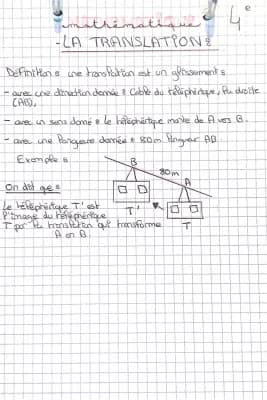 mathématique 4e
- LA TRANSLATION :
Définition : une translation est un glissement :
- avec une direction donnée : Cable du téléphérique, la droite
(AB),
- avec un sens donné : le téléphérique monte de A vers B.
- avec une longueur donnée : 80m longueur AB
Exemple :
B
80m
A
On dit que :
Le téléphérique T' est
l'image du téléphérique
T par la translation qui transforme
A en B
T'
T